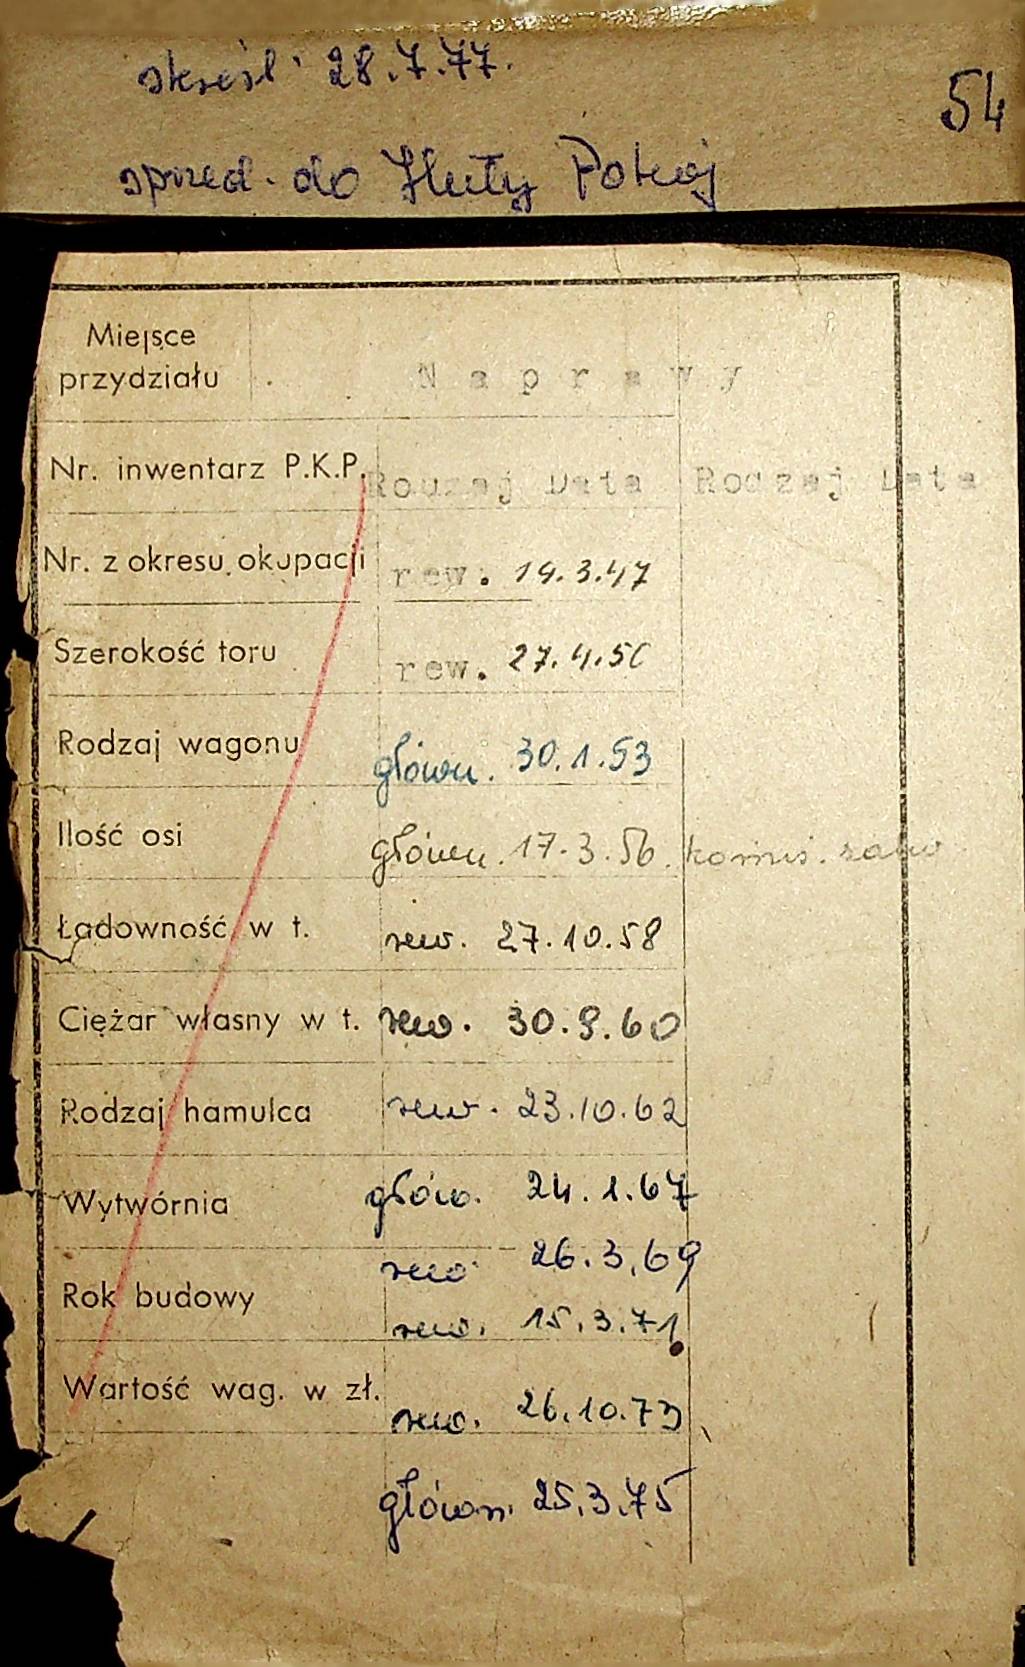 skreśl. 28.7.77.
54
sprzed. do Huty Pokój
Miejsce
przydziału
Naprawy
Nr. inwentarz P.K.P.
Rodzaj Data Rodzaj Data
Nr. z okresu okupacji rew. 14.3.47
Szerokość toru rew. 27.4.50
Rodzaj wagonu główn. 30.1.53
Ilość osi główn. 17.3.56. komis.
Ładowność w t. rew. 27.10.58
Ciężar własny w t. rew. 30.9.60
Rodzaj hamulca rew. 23.10.62
Wytwórnia głów. 24.1.67
rew. 26.3.69
Rok budowy
rew. 15.3.71
Wartość wag. w zł.
rew. 26.10.73
główn. 25.3.75